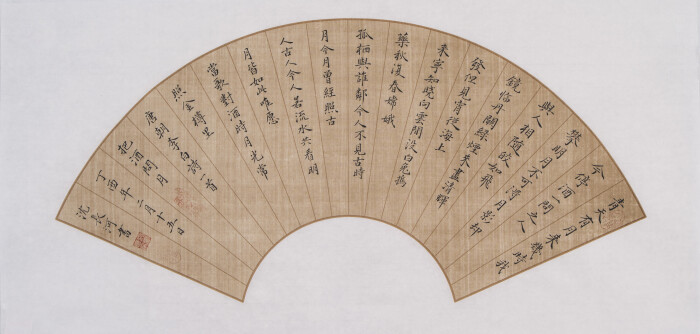 青天有月来幾時我
今停酒一問之人
攀明月不可得月影却
與人相隨皎如飛
鏡临丹闕綠煙来盡清暉
發但見宵從海上
来寧知曉向雲間没白兔搗
藥秋復春嫦娥
孤栖與誰鄰今人不見古時
月今月曾經照古
人古人今人若流水共看明
月皆如此唯愿
當歌對酒時月光常
照金樽里
唐朝李白詩一首
把酒問月
丁酉年二月十五日
沈長河書